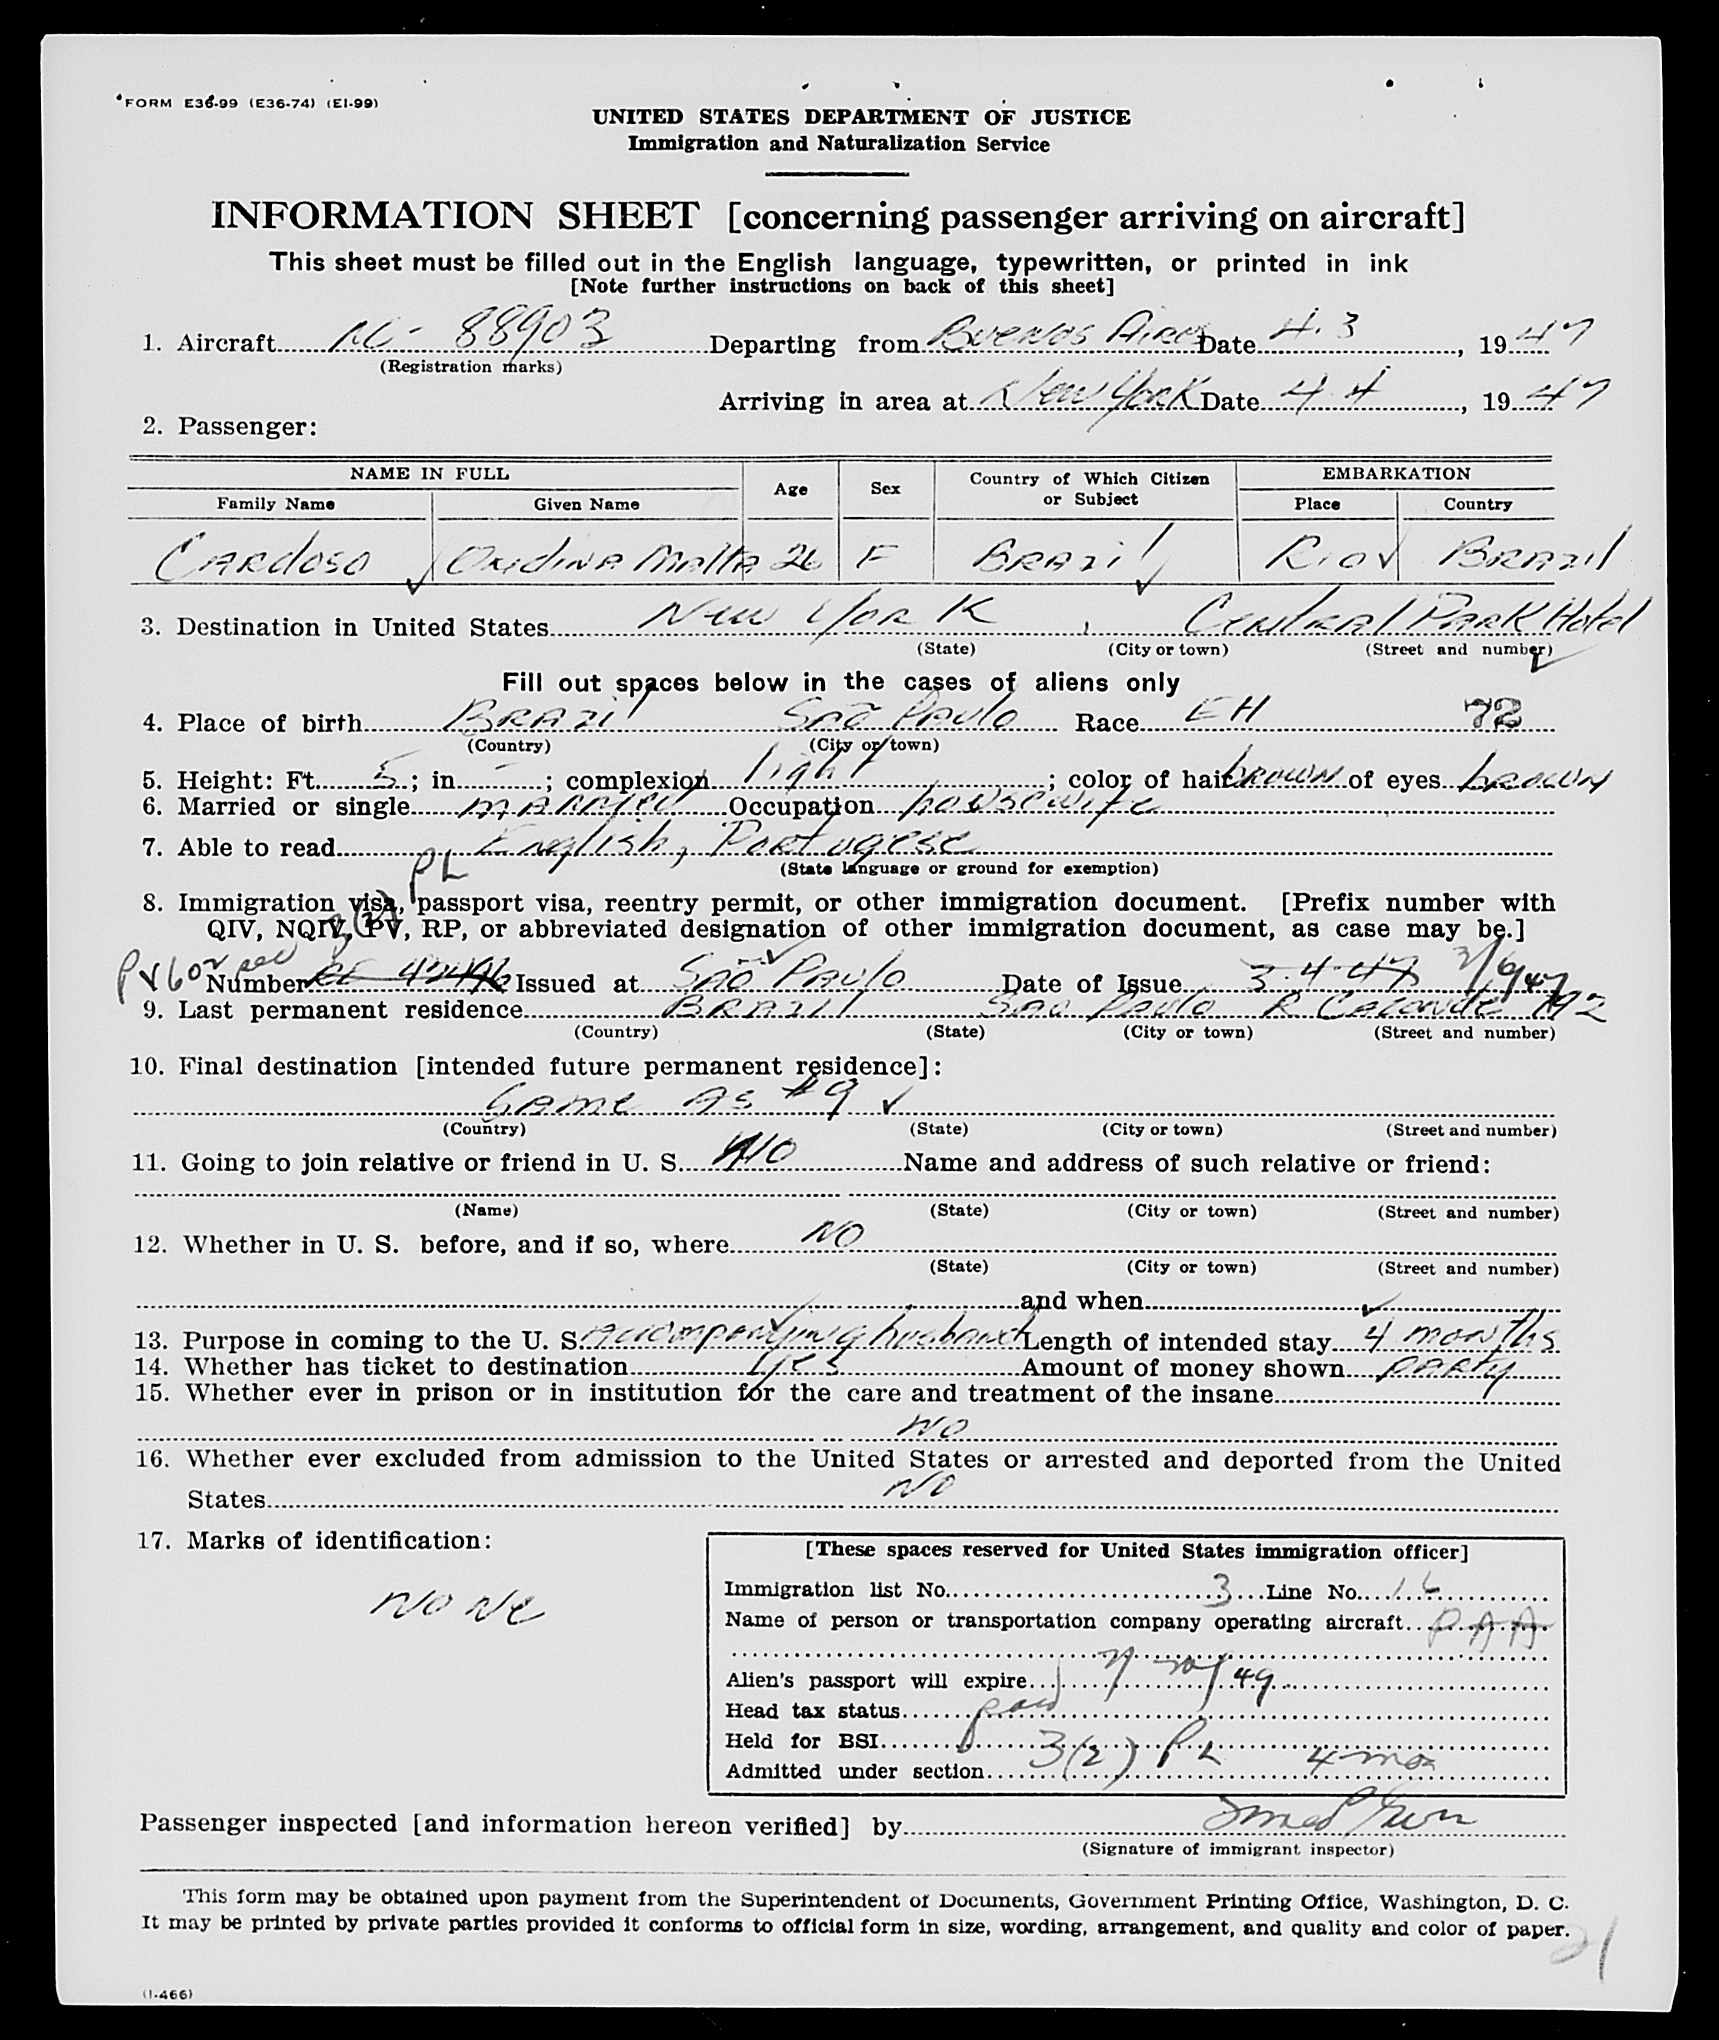 FORM E36-99 (E36-74) (E1-99)
UNITED STATES DEPARTMENT OF JUSTICE
Immigration and Naturalization Service
INFORMATION SHEET [concerning passenger arriving on aircraft]
This sheet must be filled out in the English language, typewritten, or printed in ink
[Note further instructions on back of this sheet]
1. Aircraft NC- 88903 Departing from Buenos Aires Date 4.3, 1947
(Registration marks)
Arriving in area at New York Date 4.4, 1947
2. Passenger:
NAME IN FULL Age Sex Country of Which Citizen or Subject EMBARKATION
Family Name Given Name Place Country
Cardoso Ondina Malta 26 F Brazil Rio Brazil
3. Destination in United States New York, Central Park Hotel
(State) (City or town) (Street and number)
Fill out spaces below in the cases of aliens only
4. Place of birth Brazil São Paulo Race EH 72
(Country) (City or town)
5. Height: Ft. 5; in. -; complexion light; color of hair brown of eyes brown
6. Married or single married Occupation housewife
7. Able to read English, Portugese
(State language or ground for exemption)
PL
8. Immigration visa, passport visa, reentry permit, or other immigration document. [Prefix number with
3(2)
QIV, NQIV, PV, RP, or abbreviated designation of other immigration document, as case may be.]
PV 602 Number Issued at São Paulo Date of Issue 3-4-47 3/6/47
9. Last permanent residence Brazil Sao Paulo R 192
(Country) (State) (City or town) (Street and number)
10. Final destination [intended future permanent residence]:
Same as #9
(Country) (State) (City or town) (Street and number)
11. Going to join relative or friend in U. S. NO Name and address of such relative or friend:
(Name) (State) (City or town) (Street and number)
12. Whether in U. S. before, and if so, where NO
(State) (City or town) (Street and number)
and when
13. Purpose in coming to the U. S. Accompanying husband Length of intended stay 4 months
14. Whether has ticket to destination yes Amount of money shown party
15. Whether ever in prison or in institution for the care and treatment of the insane
NO
16. Whether ever excluded from admission to the United States or arrested and deported from the United
States NO
17. Marks of identification:
None
[These spaces reserved for United States immigration officer]
Immigration list No. 3 Line No. 16
Name of person or transportation company operating aircraft PAA
Alien's passport will expire 49
Head tax status paid
Held for BSI
Admitted under section 3(2) PL 4 mos
Passenger inspected [and information hereon verified] by
(Signature of immigrant inspector)
This form may be obtained upon payment from the Superintendent of Documents, Government Printing Office, Washington, D. C.
It may be printed by private parties provided it conforms to official form in size, wording, arrangement, and quality and color of paper.
21
(1-466)